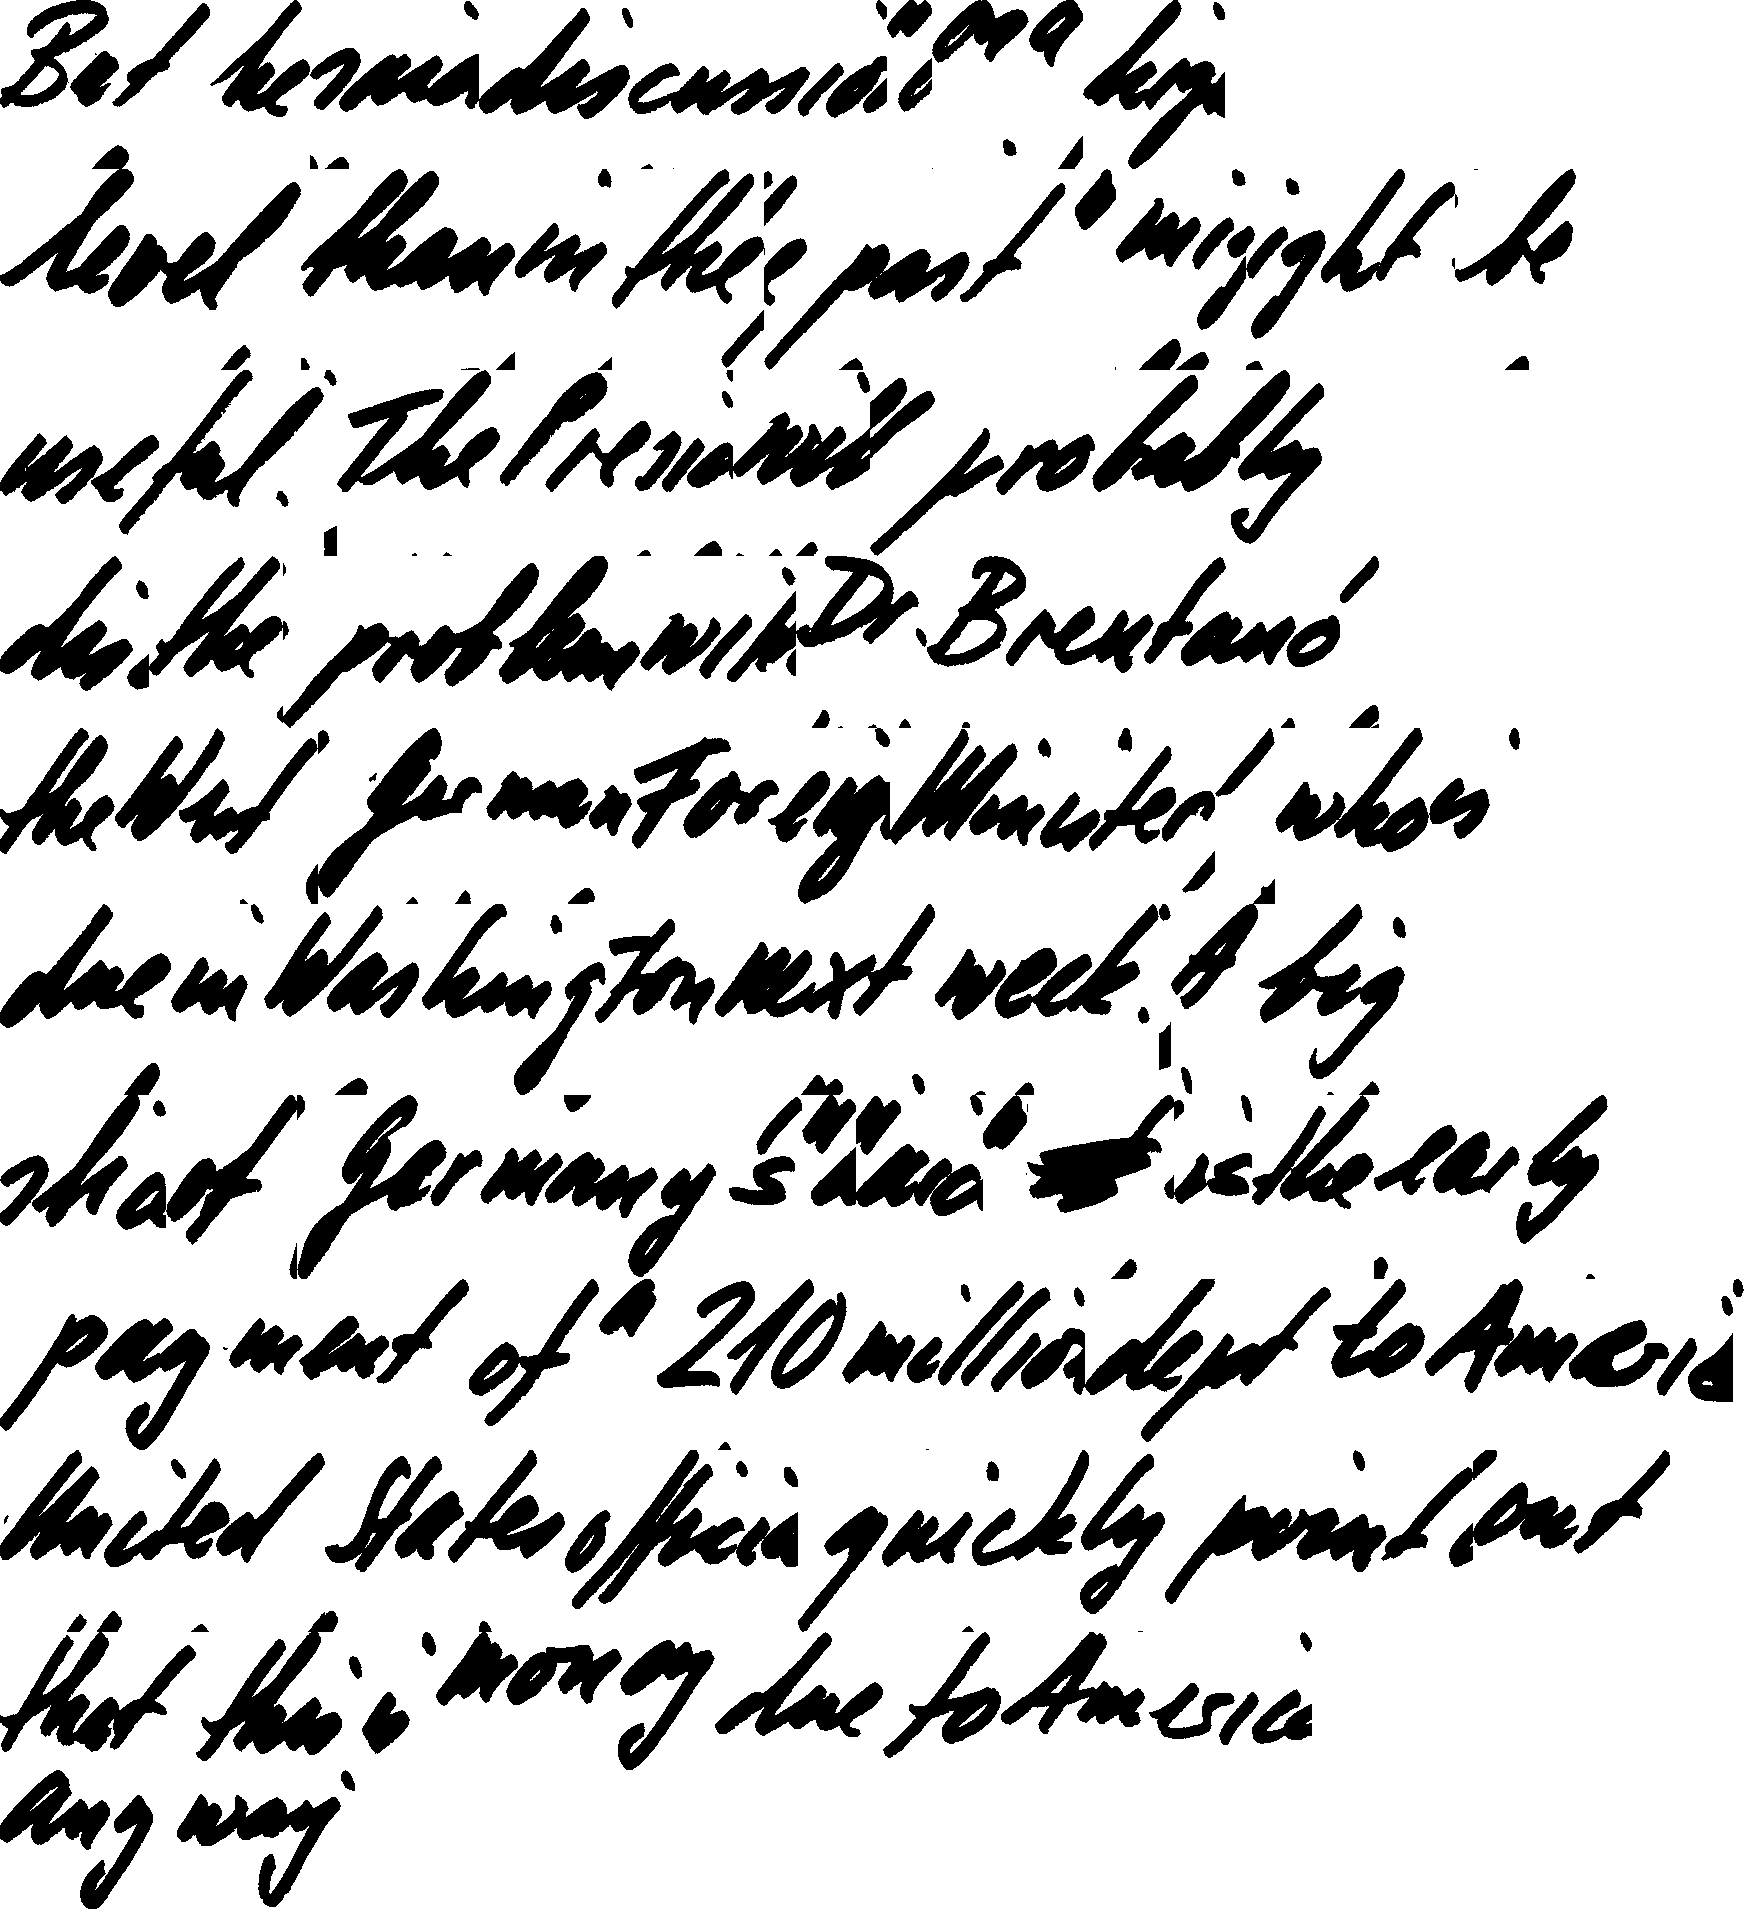 But he said discussion " on a high
level than in the past " might be
useful. The President will probably
discuss the problem with Dr. Brentano
the West German Foreign Minister, who is
due in Washington next week. A big
share of Germany 's " aid " is the early
payment of a 210 million dept to America
United States officials quickly point out
that this is money due to America
any way